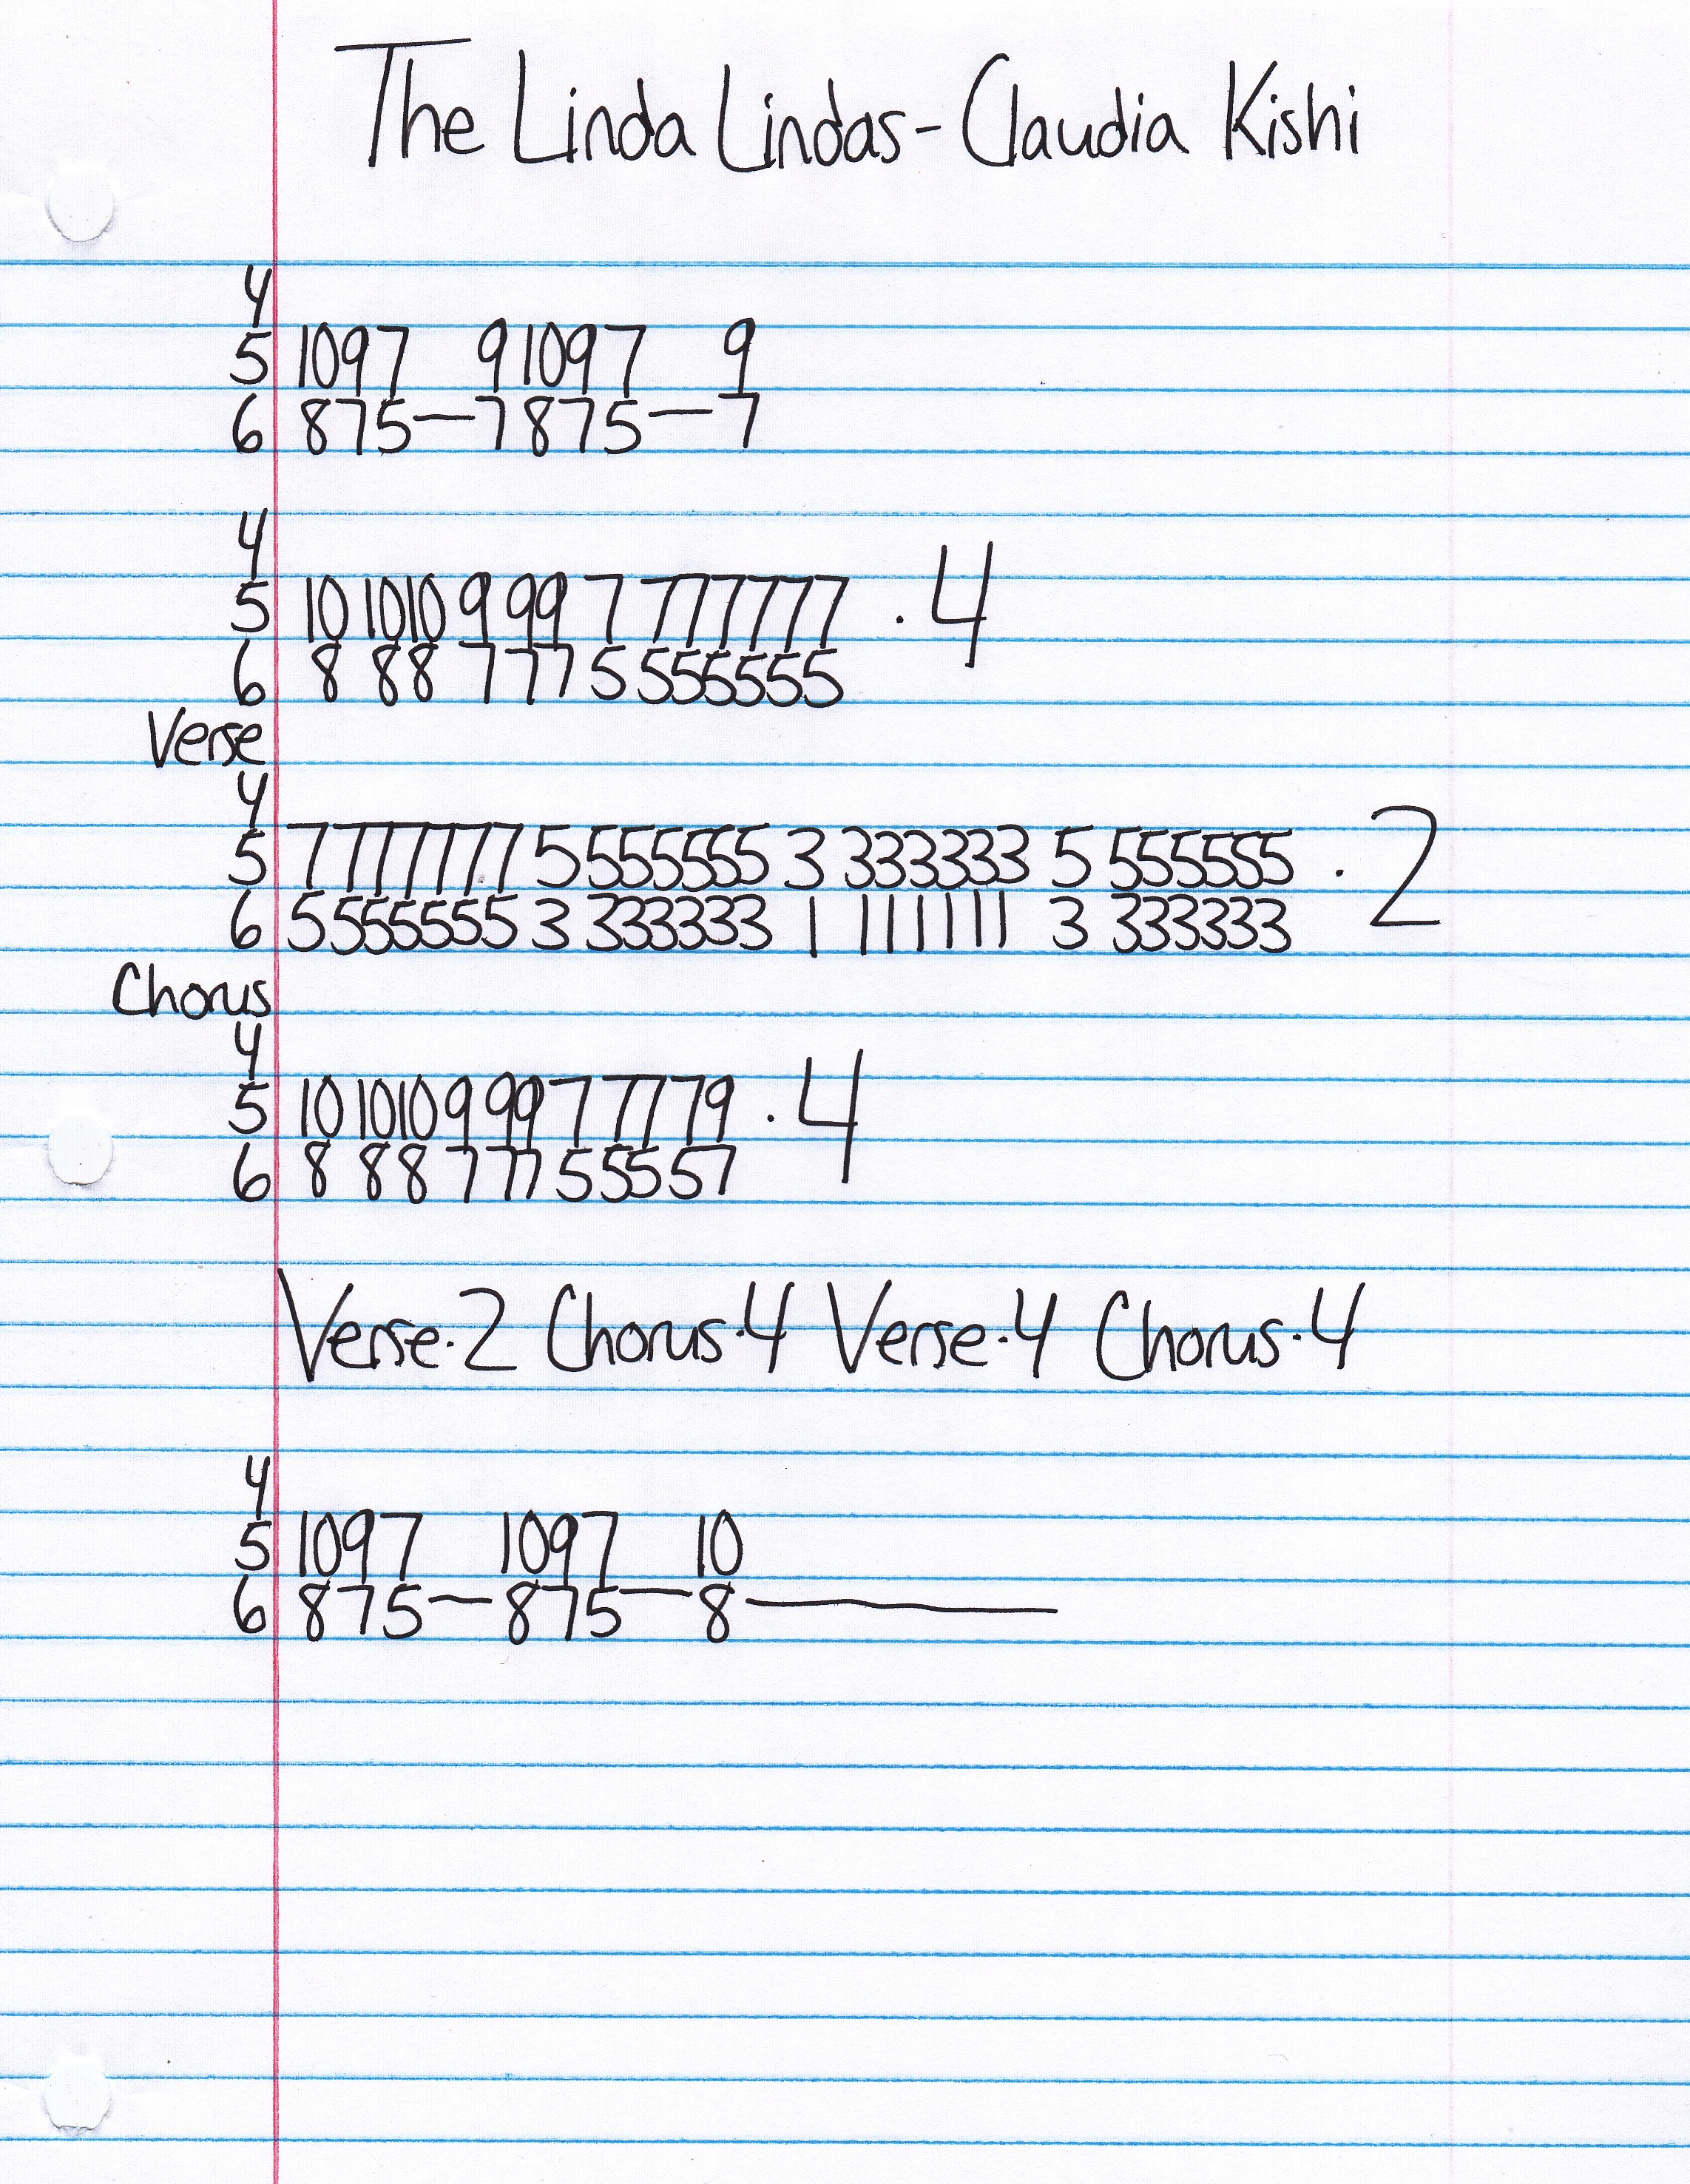 The Linda Lindas - Claudia Kishi
4
5 10 9 7 9 10 9 7 9
6 8 7 5 — 7 8 7 5 — 7
4
5 10 10 10 9 9 9 7 7 7 7 7 7 7 . 4
6 8 8 8 7 7 7 5 5 5 5 5 5 5
Verse
4
5 7 7 7 7 7 7 7 5 5 5 5 5 5 5 3 3 3 3 3 3 3 5 5 5 5 5 5 5 . 2
6 5 5 5 5 5 5 5 3 3 3 3 3 3 3 1 1 1 1 1 1 1 3 3 3 3 3 3 3
Chorus
4
5 10 10 10 9 9 9 7 7 7 7 9 . 4
6 8 8 8 7 7 7 5 5 5 5 7
Verse . 2 Chorus . 4 Verse . 4 Chorus . 4
4
5 10 9 7 10 9 7 10
6 8 7 5 — 8 7 5 — 8 —